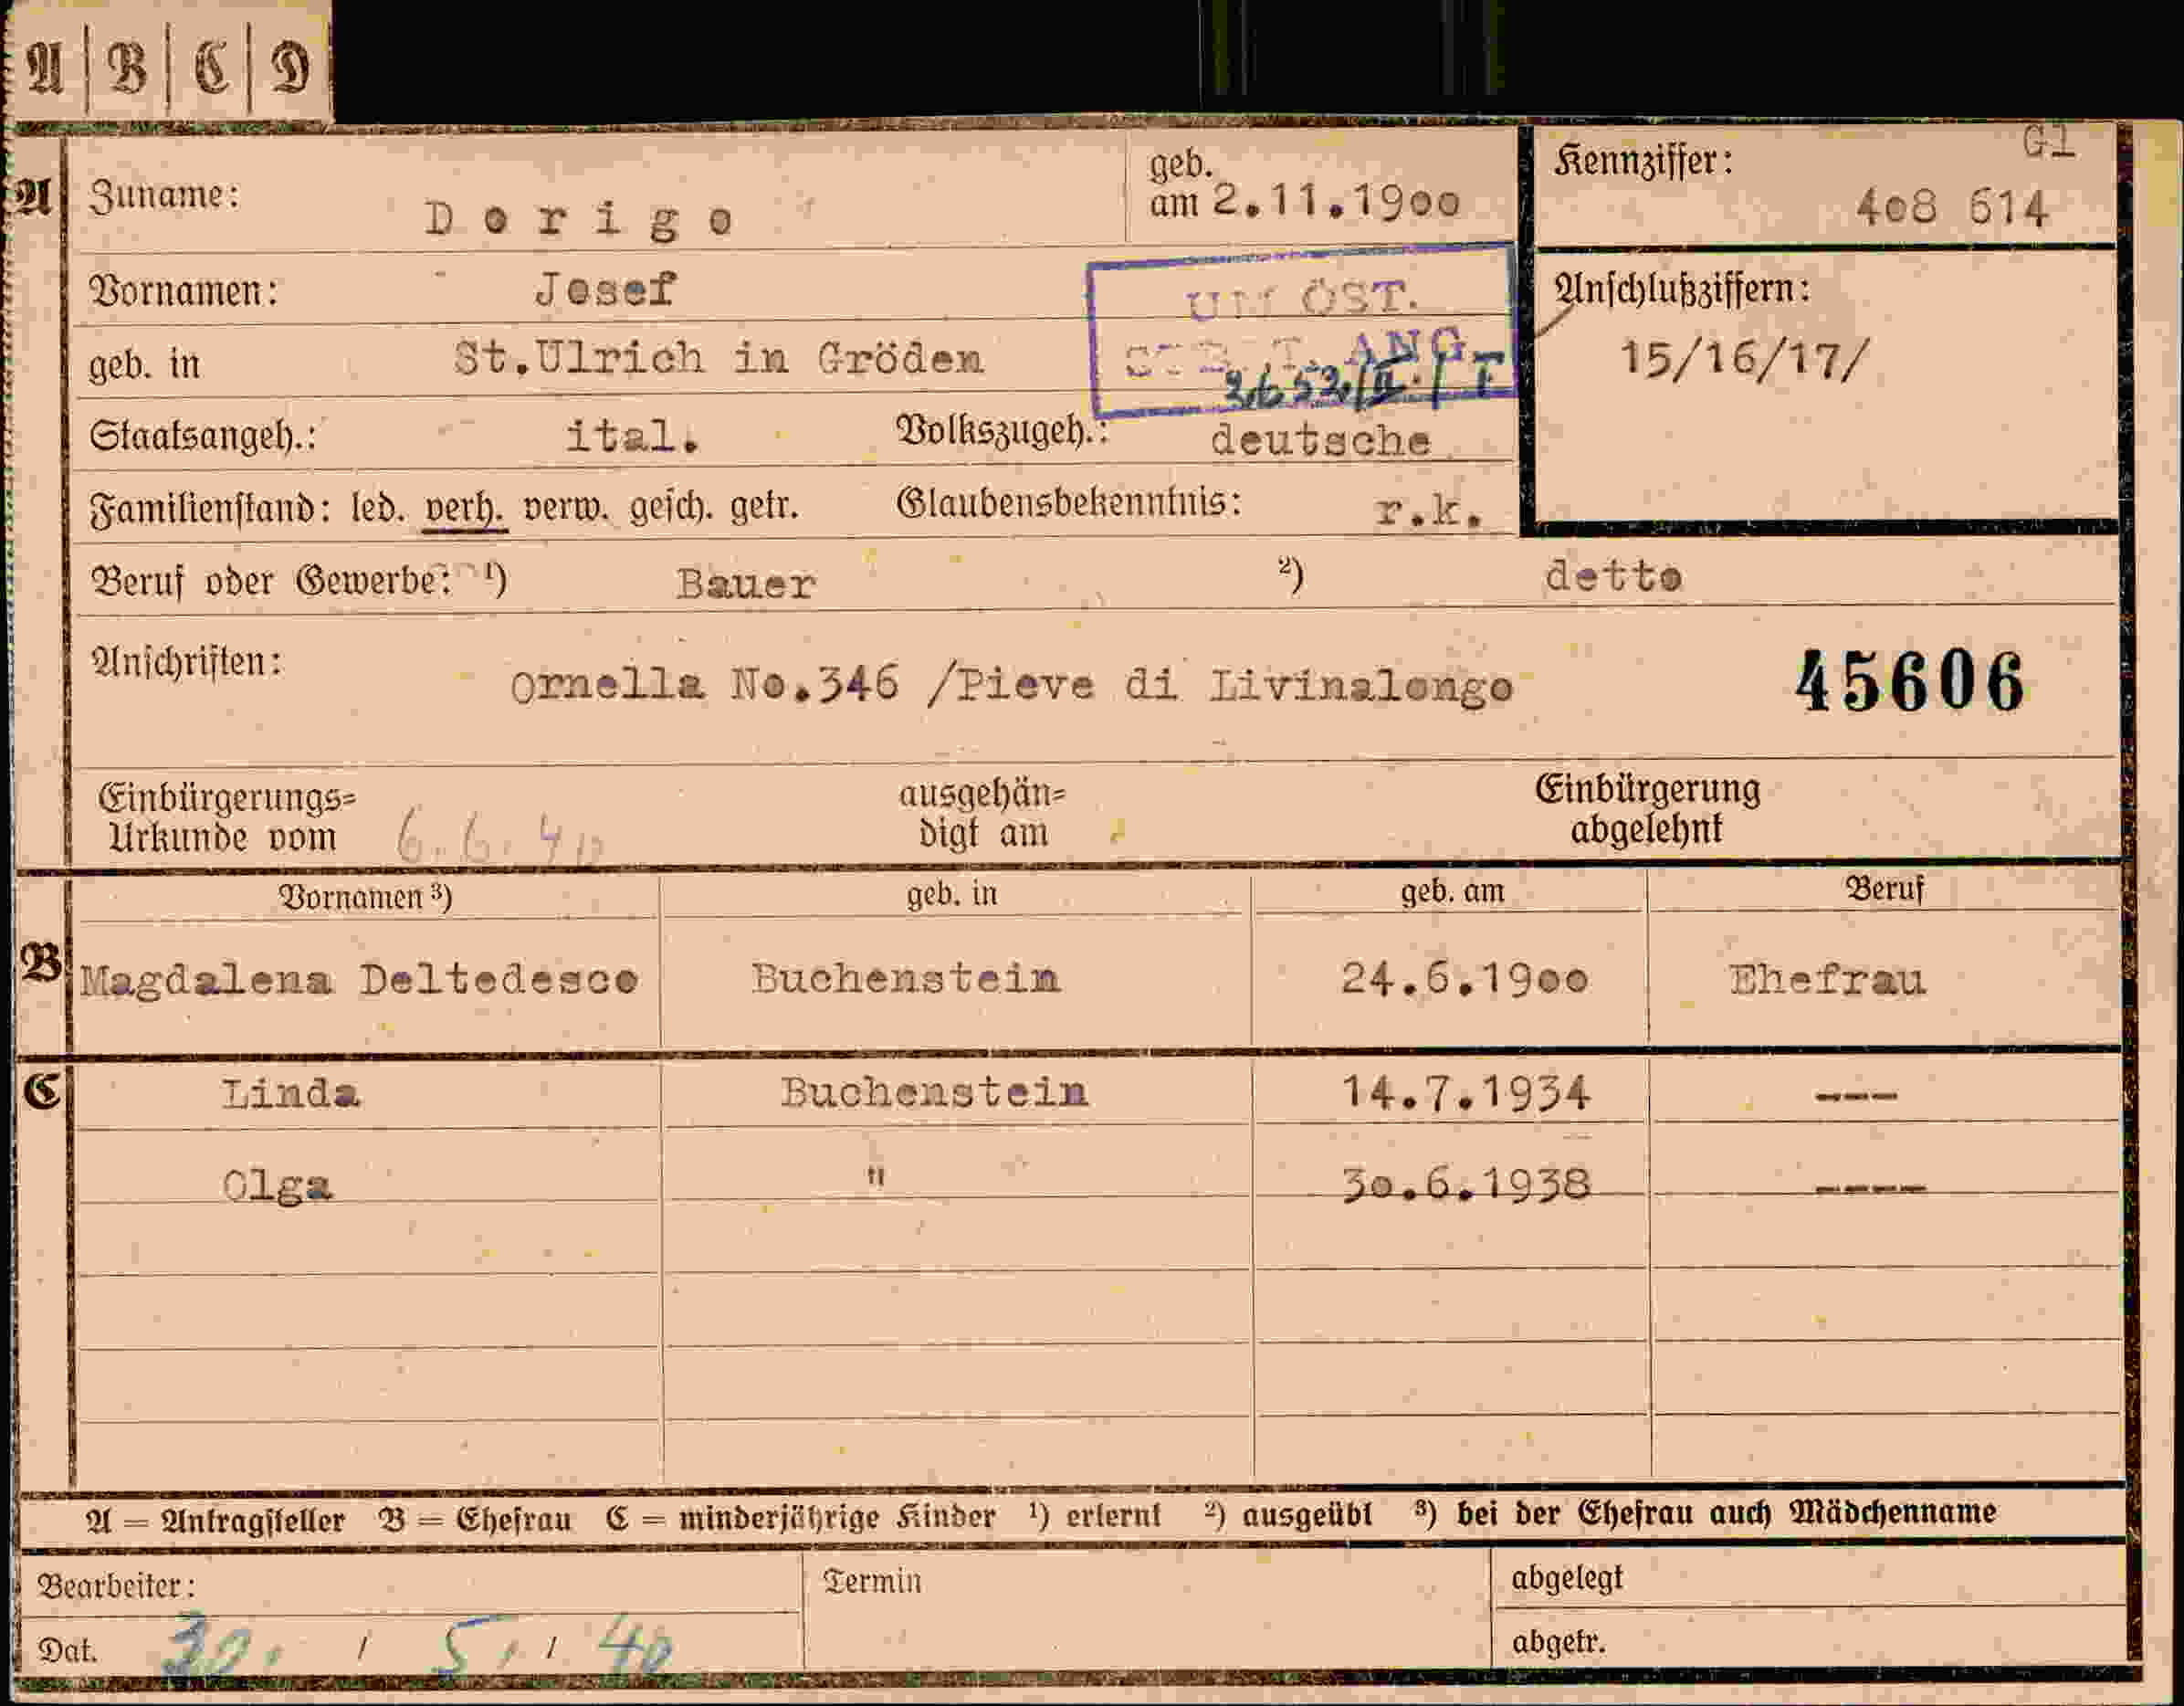 A | B | C | D
A
Zuname: Dorigo
geb. am 2.11.1900
Kennziffer: G1
408 614
Vornamen: Josef
UM ÖST.
Anschlußziffern:
15/16/17/
geb. in St.Ulrich in Gröden
ANG.
Staatsangeh.: ital. Volkszugeh.: deutsche
Familienstand: led. verh. verw. gesch. getr. Glaubensbekenntnis: r.k.
Beruf oder Gewerbe: 1) Bauer 2) detto
Anschriften: Ornella No.346 /Pieve di Livinalongo 45606
Einbürgerungs=
Urkunde vom 6.6.40
ausgehän=
digt am
Einbürgerung
abgelehnt
Vornamen 3) geb. in geb. am Beruf
B Magdalena Deltedesco Buchenstein 24.6.1900 Ehefrau
C Linda Buchenstein 14.7.1934 ---
Olga " 30.6.1938 ----
A = Antragsteller B = Ehefrau C = minderjährige Kinder 1) erlernt 2) ausgeübt 3) bei der Ehefrau auch Mädchenname
Bearbeiter: Termin abgelegt
Dat. 30. / 5. / 40 abgetr.